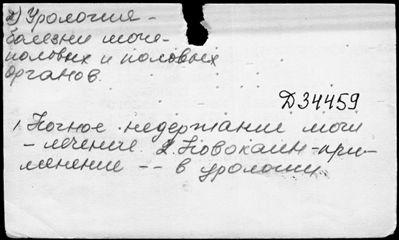 ж) Урология -
болезни моче-
половых и половых
органов.
Д34459
1. Ночное недержание мочи
- лечение. 2. Новокаин - при-
менение -- в урологии.